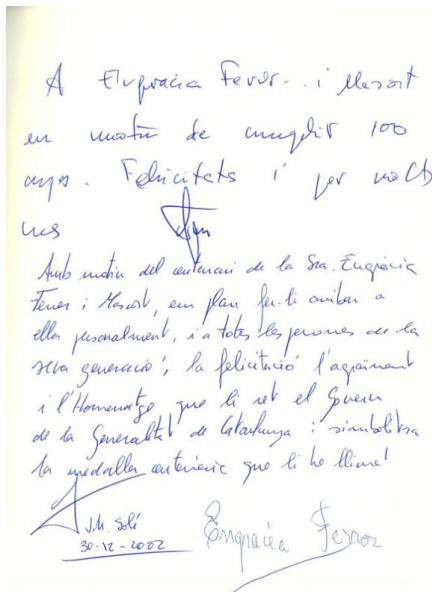 A Engracia Ferrer.. i Mascort
en motiu de cumplir 100
anys. Felicitats i per molts
mes
Amb motiu del centenari de la Sra. Engràcia
Ferrer i Mascort, em plau fer-li arribar a
ella personalment, i a totes les persones de la
seva generació, la felicitació l'agraïment
i l'Homenatge que li ret el Govern
de la Generalitat de Catalunya i simbolitza
la medalla centenària que li he lliurat
J.M. Solé
30-12-2002
Engracia Ferrer